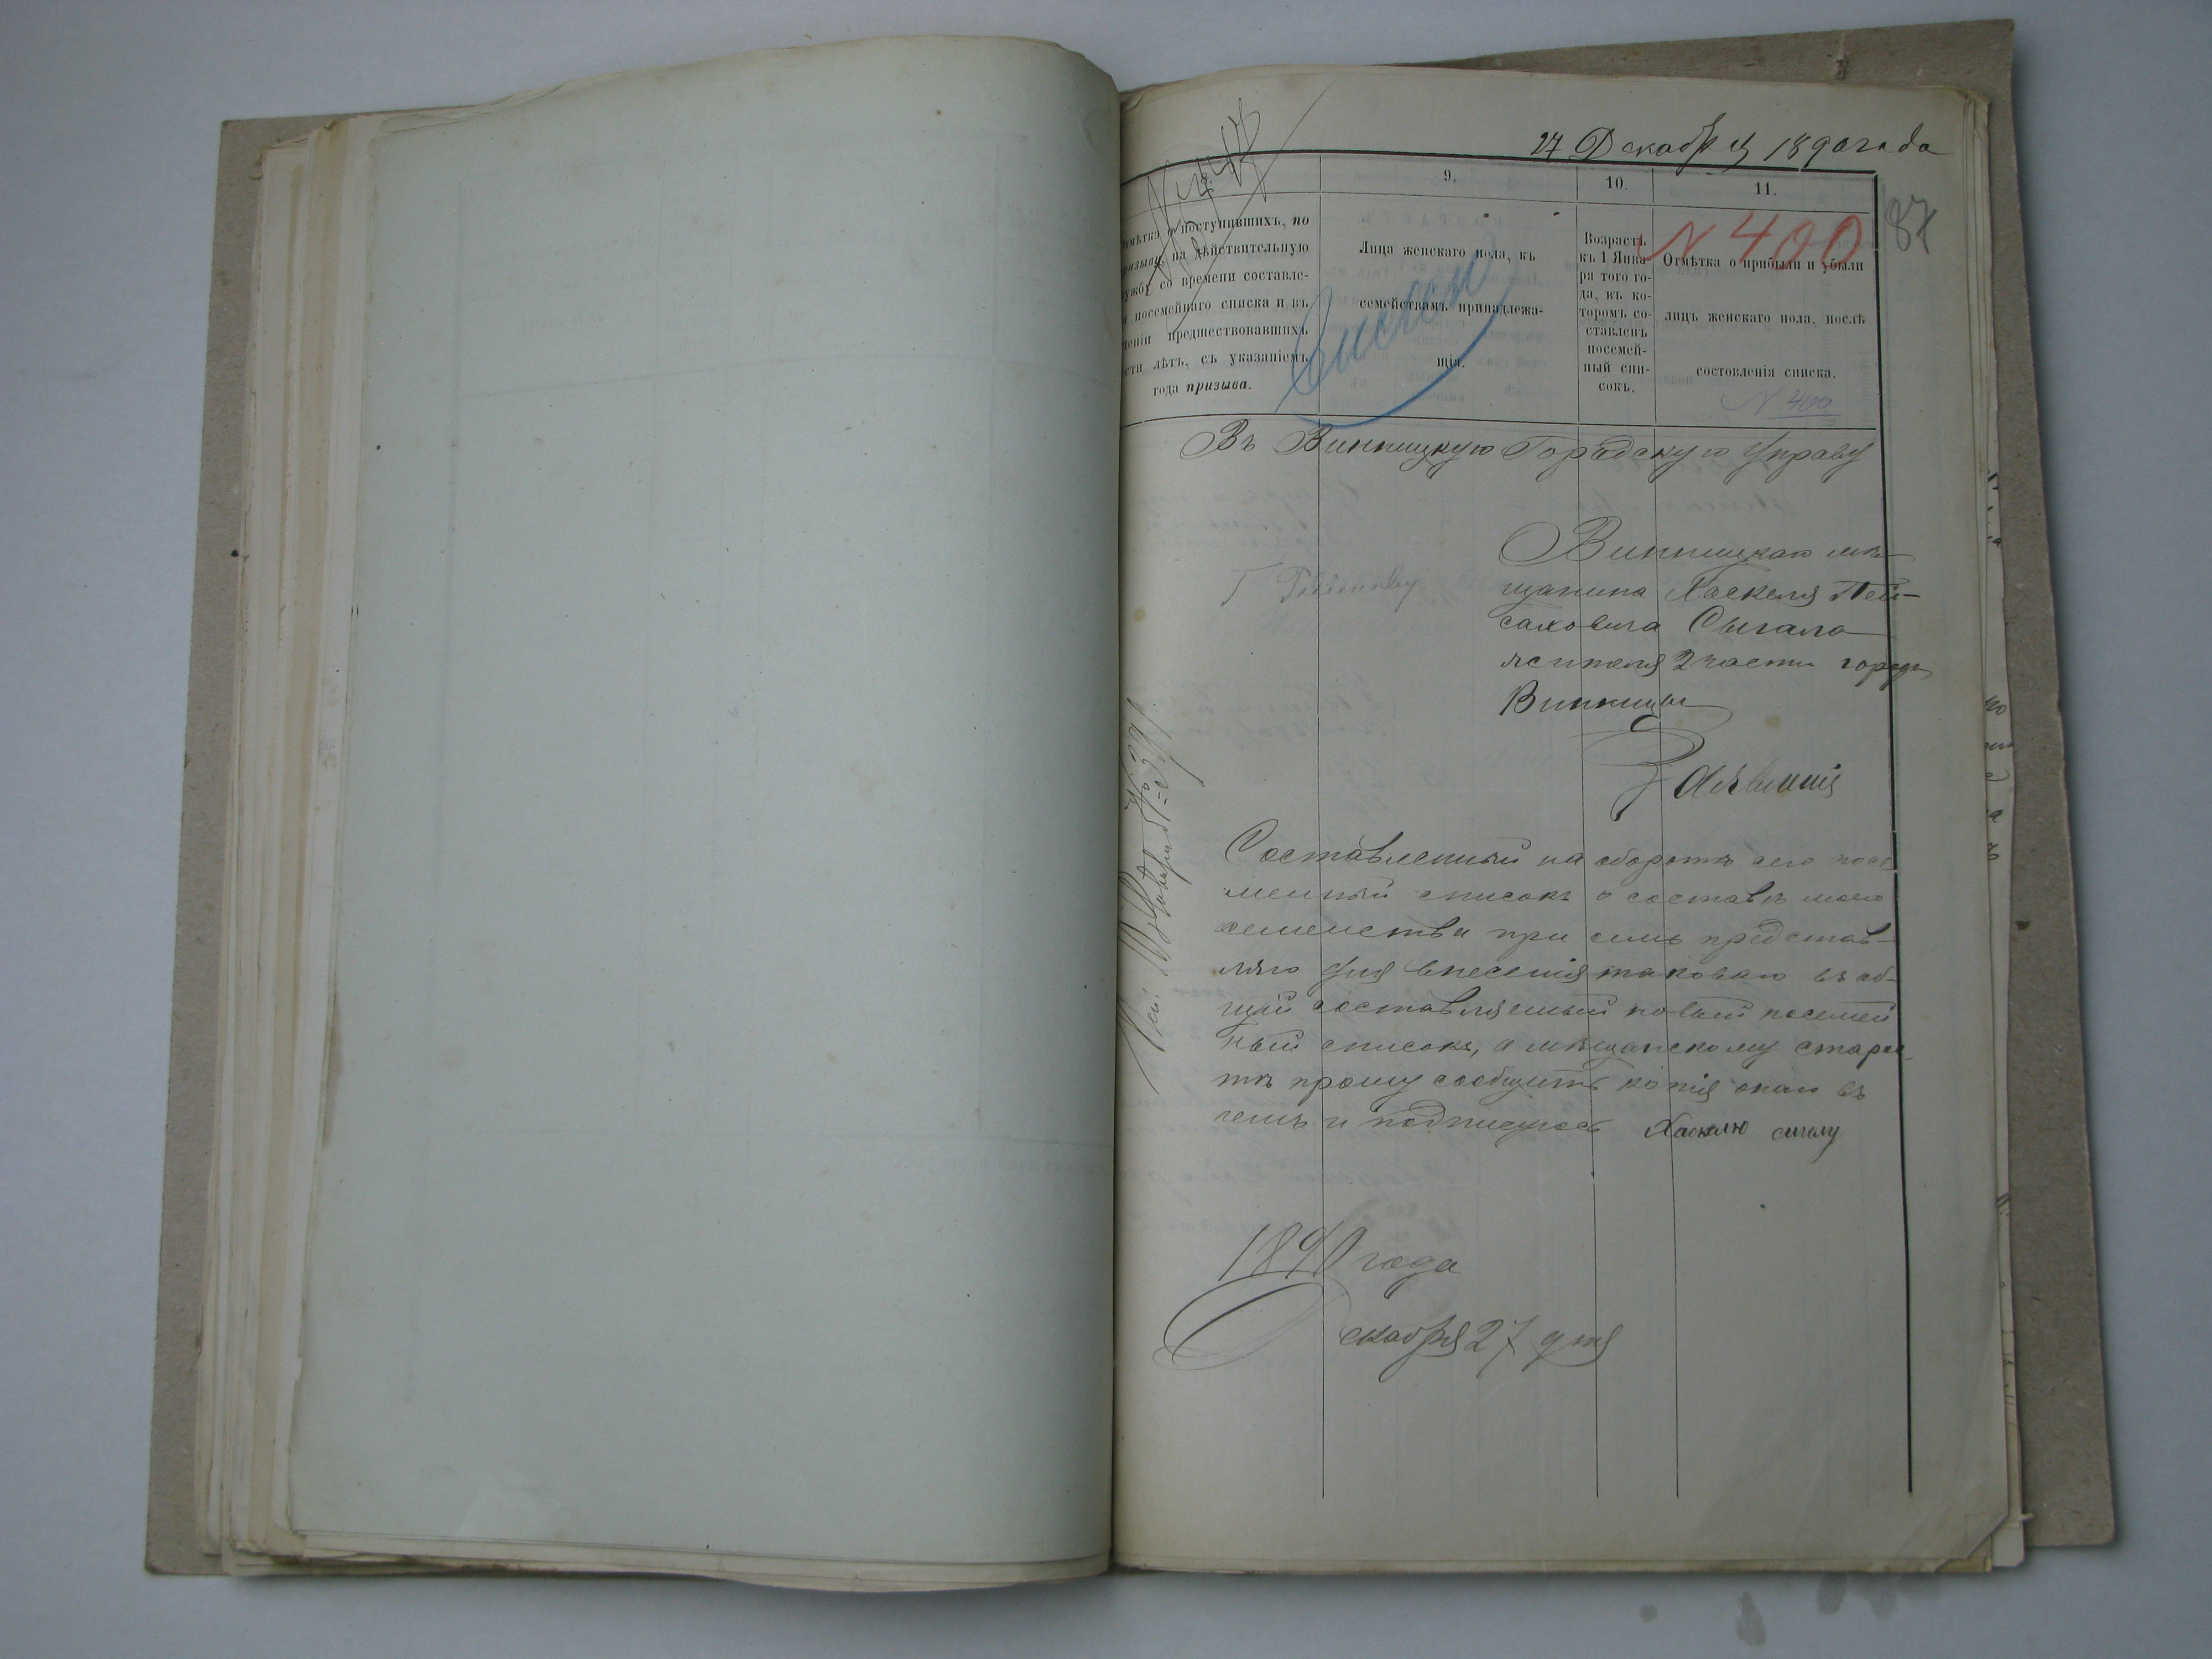 27 Декабря 1890 года
87
9.
10.
11.
Отмѣтка о поступившихъ, по
призыву, на дѣйствительную
службу со времени составле-
посемейнаго списка и въ
теченіи предшествовавшихъ
лѣтъ, съ указаніемъ
года призыва.
Лица женскаго пола, къ
семействамъ принадлежа-
щія.
Возрастъ
къ 1 Янва-
ря того го-
да, въ ко-
торомъ со-
ставленъ
посемей-
ный спи-
сокъ.
N 400
Отмѣтка о прибыли и убыли
лицъ женскаго пола, послѣ
состовленія списка.
N 400
Въ Винницкую Городскую Управу
Винницкаго мѣ-
щанина Хаскеля Пей-
саховича Сыгала
жителя 2 части города
Винницы
Заявленія
Составленный на оборотѣ сего посе
мейный списокъ о составѣ моего
семейства при семъ представ-
ляю для внесенія таковаго въ об-
щій составляемый новый посемей
ный списокъ, а мѣщанскому старос
тѣ прошу сообщить копія оного въ
чемъ и подписуюсь Хаскелю сигалу
1890 года
Декабря 27 дня